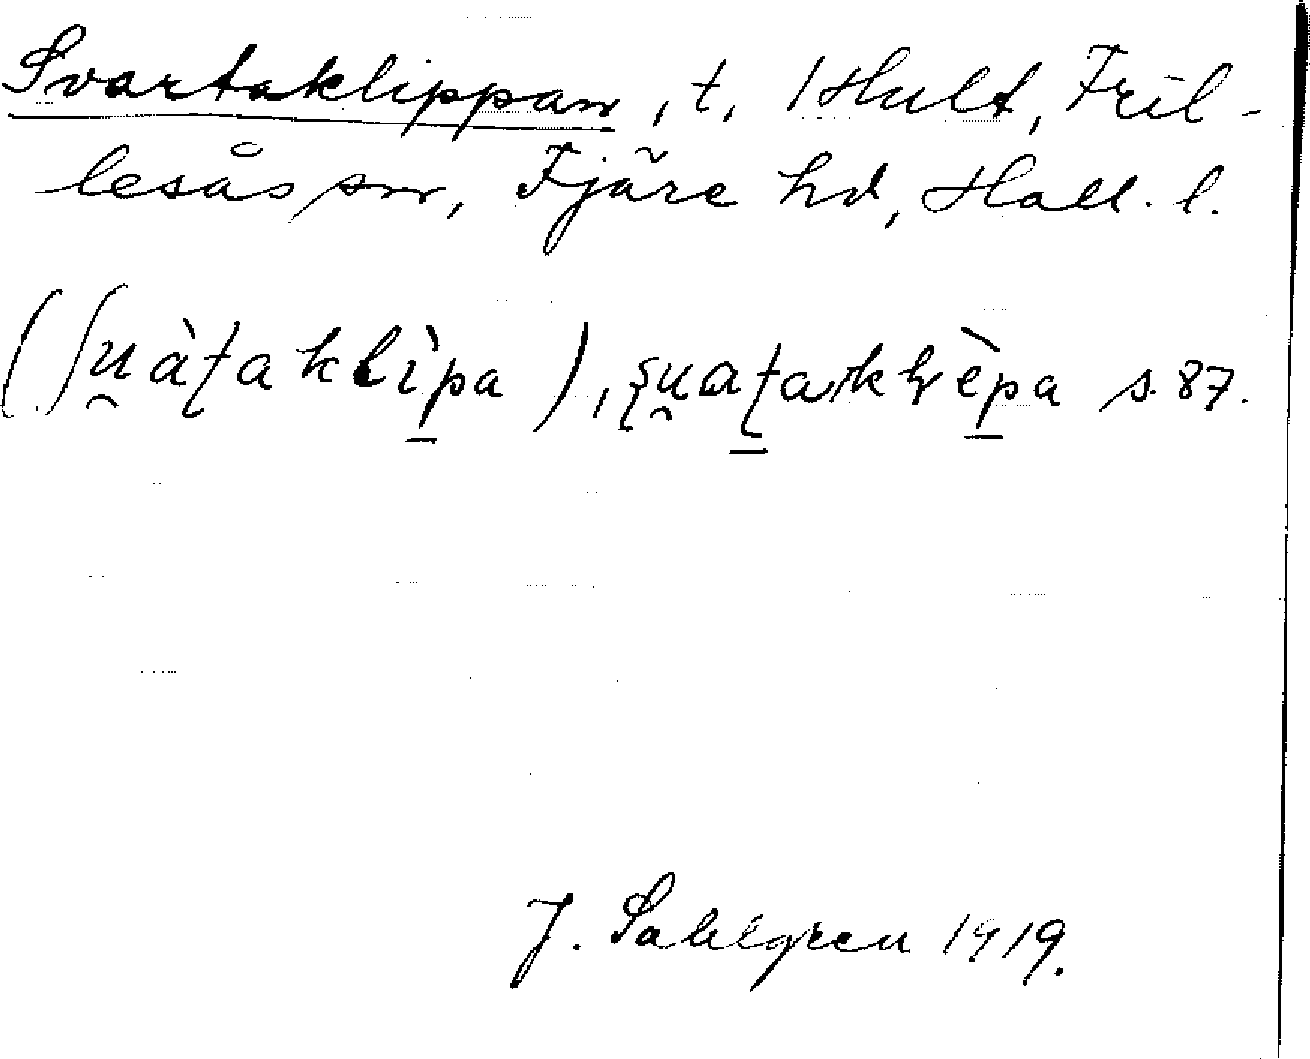 Svartaklippan, t. 1 Hult, Fril-
lesås sn, Fjäre hd, Hall. l.
(ʃu̯àʈaklìpa), ʂu̯aʈa klèpa s. 87.
J. Sahlgren 1919.